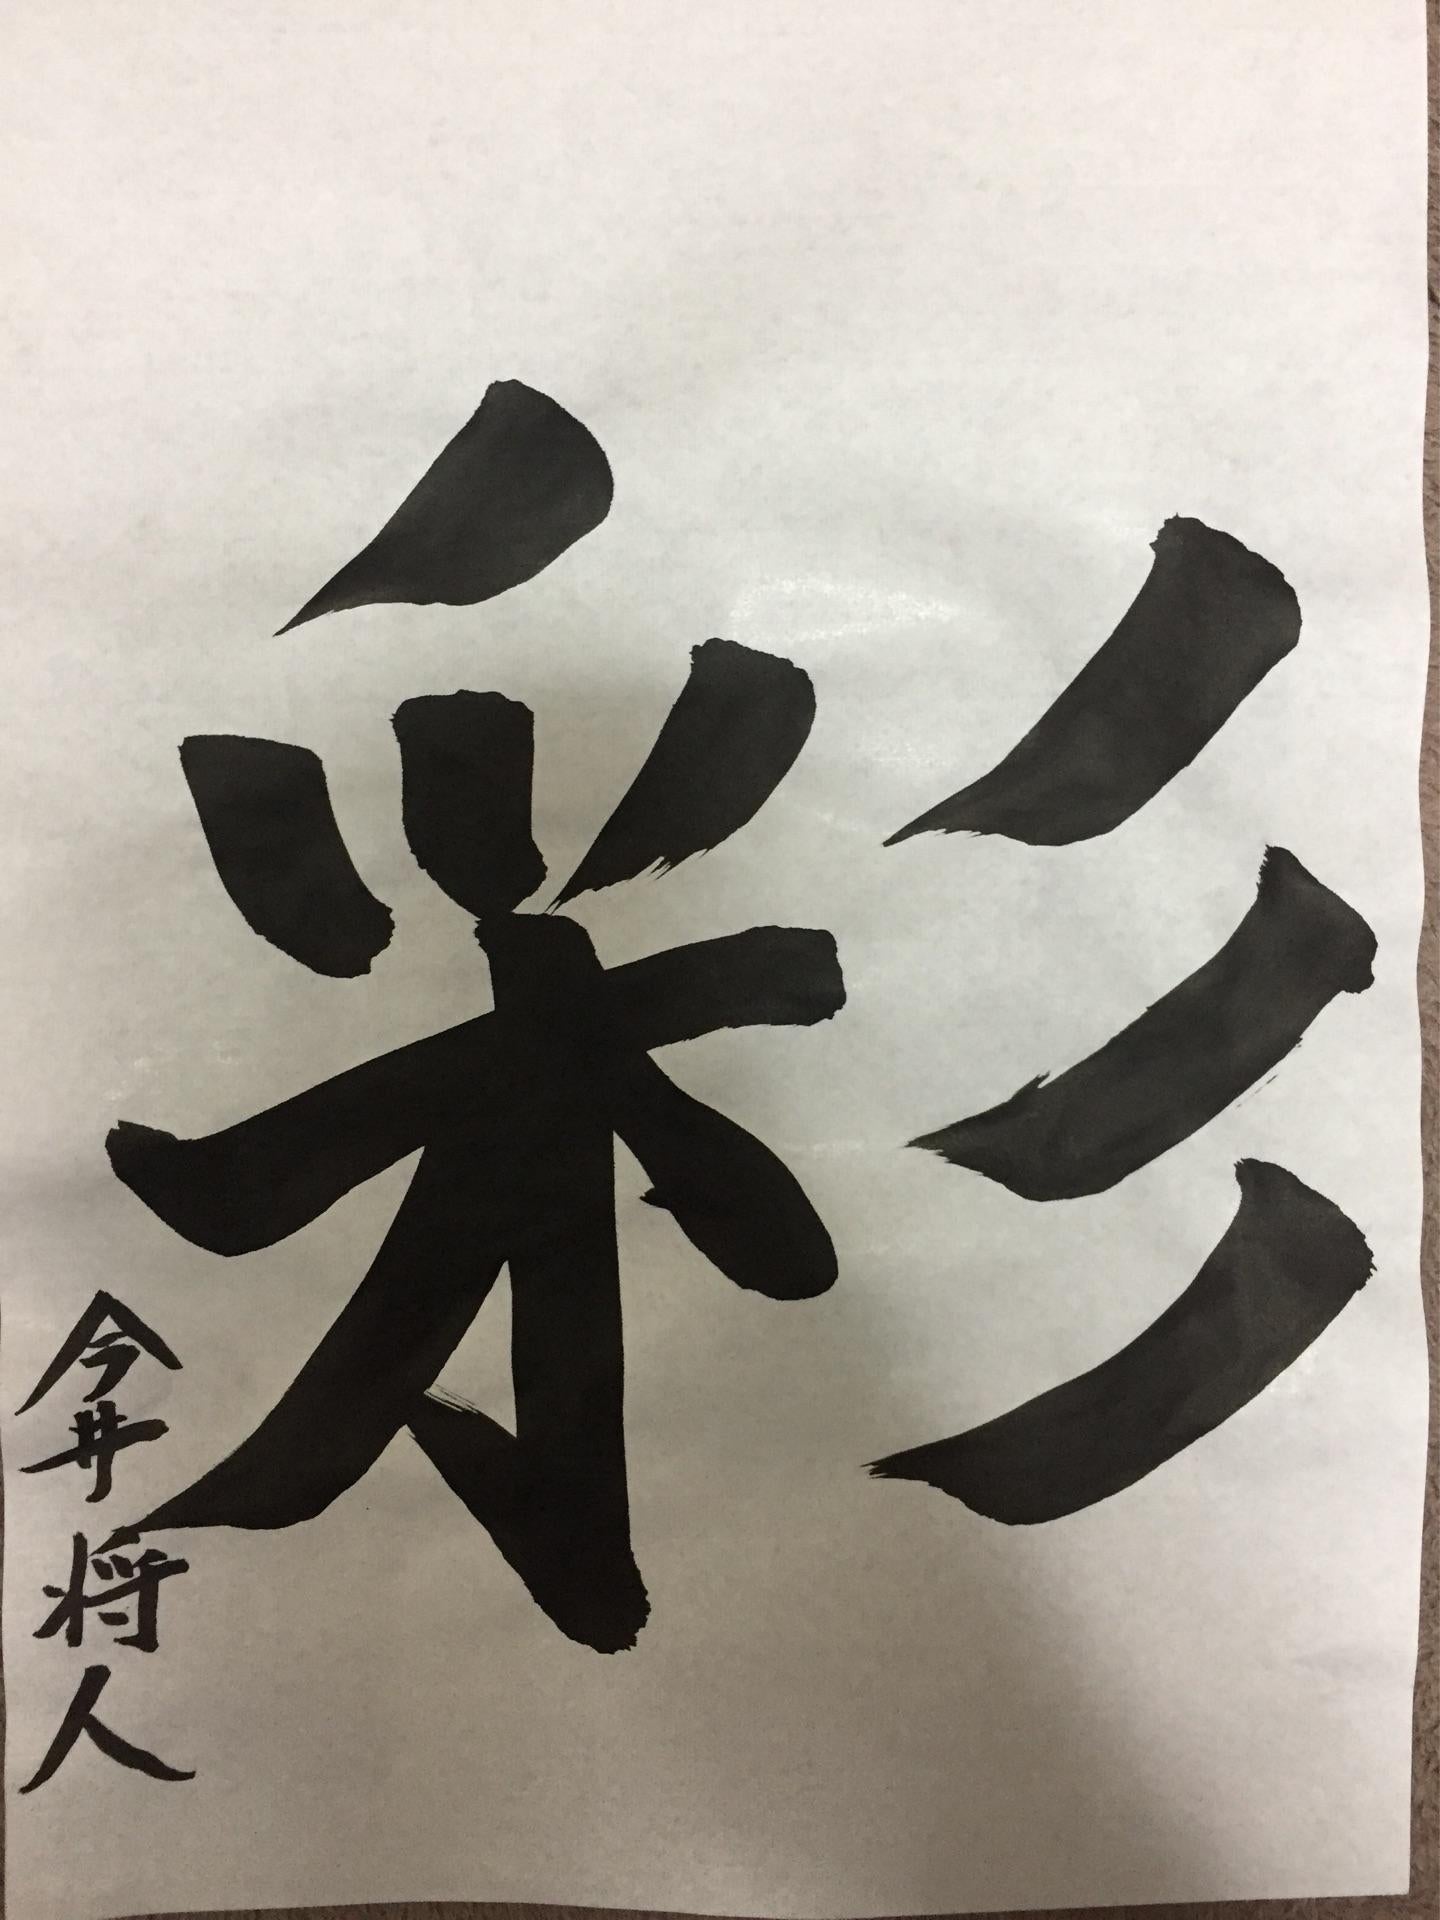 彩
今井将人